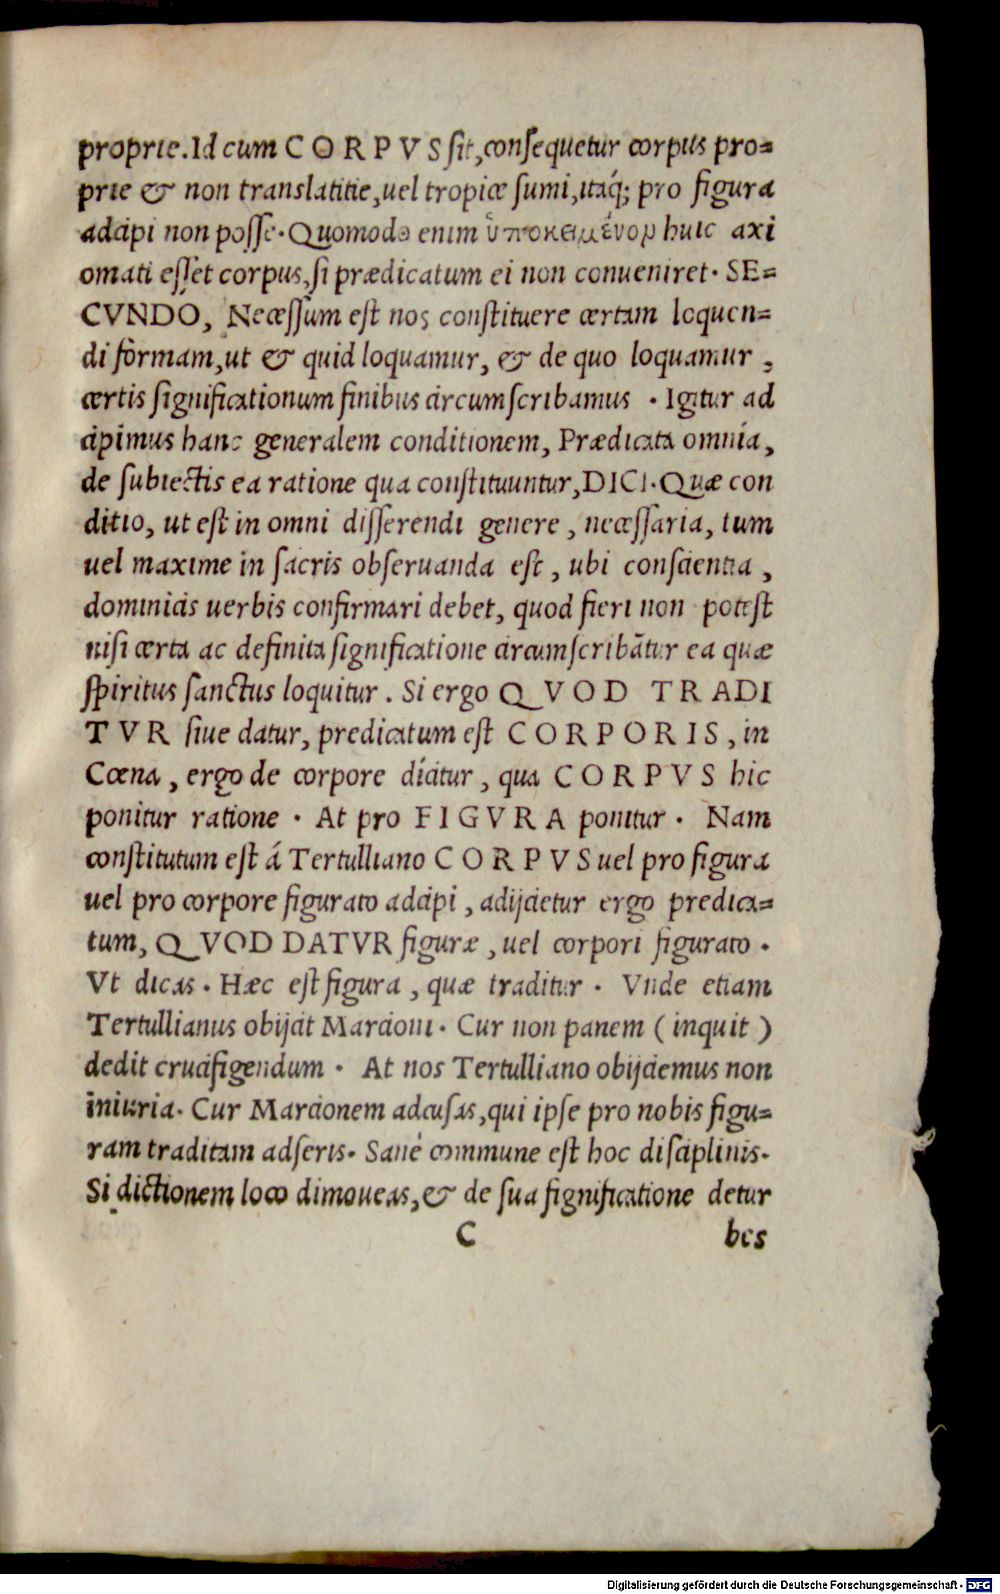 proprie. Id cum CORPVS ſit, conſequetur corpus pro=
prie & non translatitie, uel tropicæ ſumi, itáq; pro figura
adcipi non poſſe. Quomodo enim ὑποκειμένον huic axi
omati eſſet corpus, ſi prædicatum ei non conueniret. SE=
CVNDO, Neceſſum eſt nos conſtituere certam loquen=
di formam, ut & quid loquamur, & de quo loquamur,
certis ſignificationum finibus circumſcribamus. Igitur ad
cipimus hanc generalem conditionem, Prædicata omnia,
de ſubiectis ea ratione qua conſtituuntur, DICI. Quæ con
ditio, ut eſt in omni diſſerendi genere, neceſſaria, tum
uel maxime in ſacris obſeruanda eſt, ubi conſcientia,
dominicis uerbis confirmari debet, quod fieri non poteſt
niſi certa ac definita ſignificatione circumſcribãtur ea quæ
ſpiritus ſanctus loquitur. Si ergo QVOD TRADI
TVR ſiue datur, predicatum eſt CORPORIS, in
Cœna, ergo de corpore dicitur, qua CORPVS hic
ponitur ratione. At pro FIGVRA ponitur. Nam
conſtitutum eſt á Tertulliano CORPVS uel pro figura
uel pro corpore figurato adcipi, adijcietur ergo predica=
tum, QVOD DATVR figuræ, uel corpori figurato.
Vt dicas. Hæc eſt figura, quæ traditur. Vnde etiam
Tertullianus obijcit Marcioni. Cur non panem (inquit)
dedit crucifigendum. At nos Tertulliano obijciemus non
iniuria. Cur Marcionem adcuſas, qui ipſe pro nobis figu=
ram traditam adſeris. Sané commune eſt hoc diſciplinis.
Si dictionem loco dimoueas, & de ſua ſignificatione detur
C bes
Digitalisierung gefördert durch die Deutsche Forschungsgemeinschaft - DFG